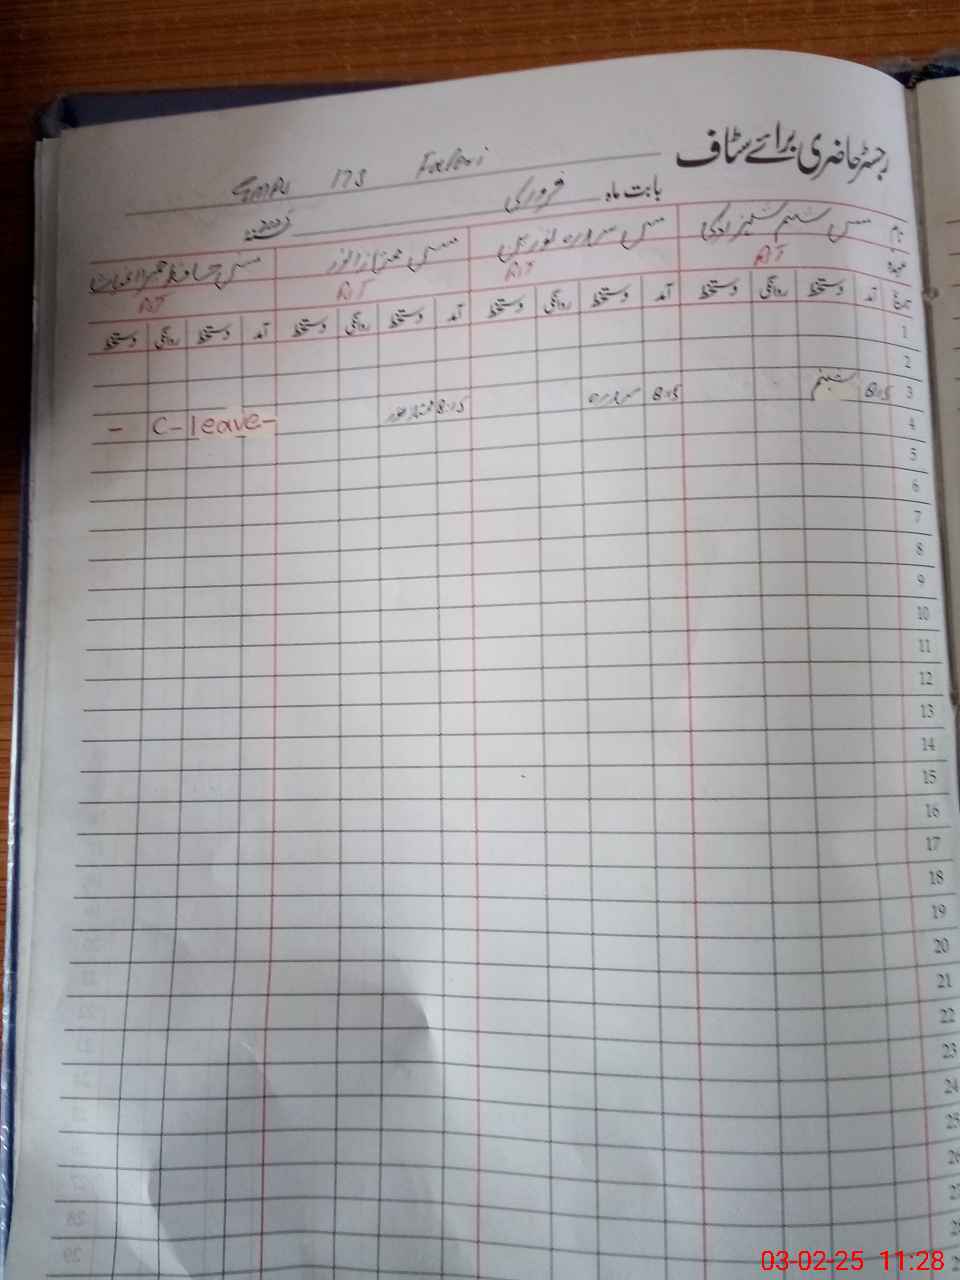 رجسٹر حاضری برائے سٹاف
GMPS 173
بابت ماہ فروری 2025ء
نام مس شبنم مس سدرہ مس ممتاز انور مس
عہدہ AT AT AT AT
تاریخ آمد دستخط روانگی دستخط آمد دستخط روانگی دستخط آمد دستخط روانگی دستخط آمد دستخط روانگی دستخط
1
2
3 8:15 شبنم 8:15 سدرہ 8:15 - C-leave -
4
5
6
7
8
9
10
11
12
13
14
15
16
17
18
19
20
21
22
23
24
25
26
27
28
03-02-25 11:28